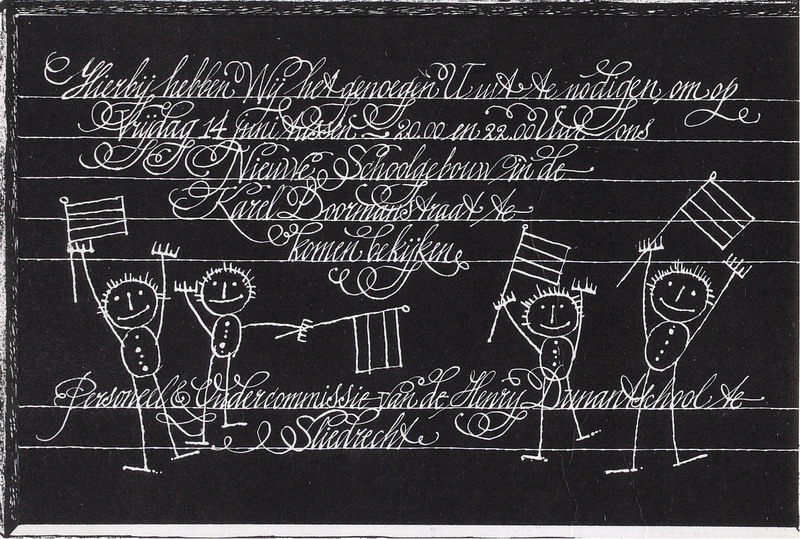 Hierbij hebben Wij het genoegen U uit te nodigen, om op
Vrijdag 14 juni tussen 20.00 en 22.00 Uur ons
Nieuwe Schoolgebouw in de
Karel Doormanstraat te
komen bekijken.
Personeel & Oudercommissie van de Henry Dunantschool te
Sliedrecht